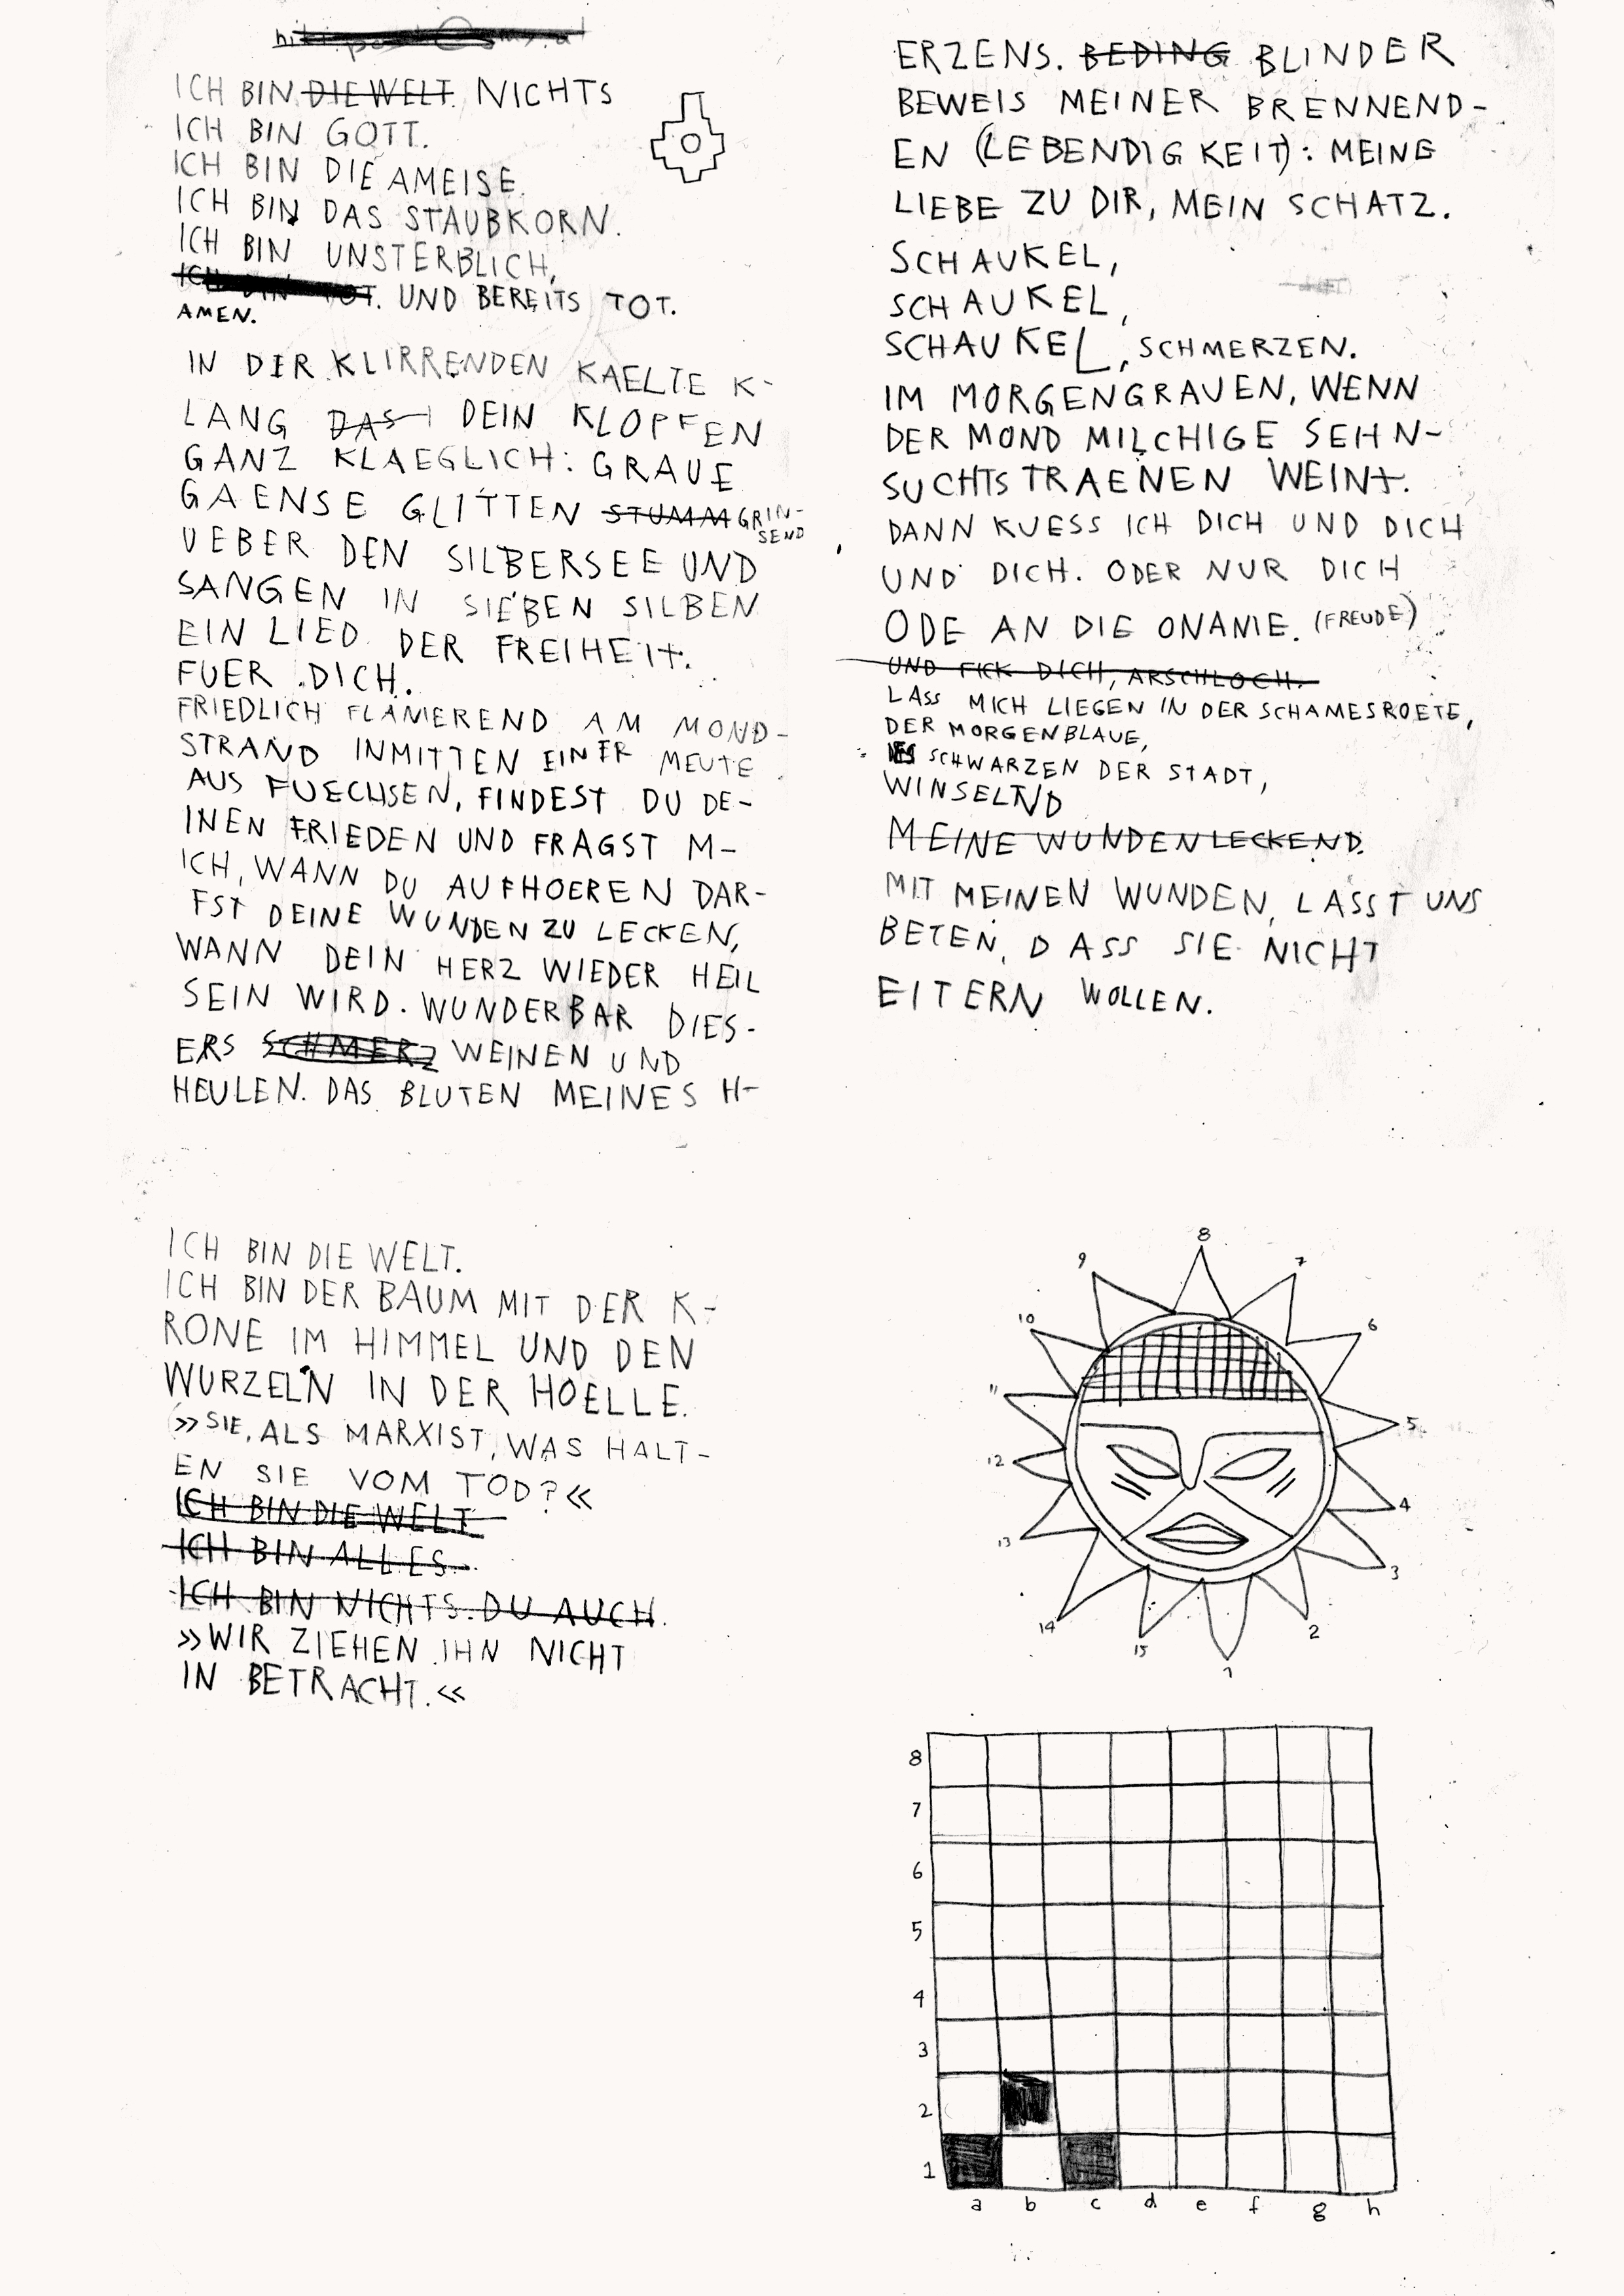 ICH BIN DIE WELT. NICHTS
ICH BIN GOTT.
ICH BIN DIE AMEISE.
ICH BIN DAS STAUBKORN.
ICH BIN UNSTERBLICH,
ICH BIN TOT. UND BEREITS TOT.
AMEN.
IN DER KLIRRENDEN KAELTE K-
LANG DAS DEIN KLOPFEN
GANZ KLAEGLICH: GRAUE
GAENSE GLITTEN STUMM GRIN-
SEND
UEBER DEN SILBERSEE UND
SANGEN IN SIEBEN SILBEN
EIN LIED DER FREIHEIT.
FUER DICH.
FRIEDLICH FLANIEREND AM MOND-
STRAND INMITTEN EINER MEUTE
AUS FUECHSEN, FINDEST DU DE-
INEN FRIEDEN UND FRAGST M-
ICH, WANN DU AUFHOEREN DAR-
FST DEINE WUNDEN ZU LECKEN,
WANN DEIN HERZ WIEDER HEIL
SEIN WIRD. WUNDERBAR DIES-
ERS SCHMERZ WEINEN UND
HEULEN. DAS BLUTEN MEINES H-
ERZENS. BEDING BLINDER
BEWEIS MEINER BRENNEND-
EN (LEBENDIGKEIT): MEINE
LIEBE ZU DIR, MEIN SCHATZ.
SCHAUKEL,
SCHAUKEL,
SCHAUKEL, SCHMERZEN.
IM MORGENGRAUEN, WENN
DER MOND MILCHIGE SEHN-
SUCHTSTRAENEN WEINT.
DANN KUESS ICH DICH UND DICH
UND DICH. ODER NUR DICH
ODE AN DIE ONANIE. (FREUDE)
UND FICK DICH, ARSCHLOCH.
LASS MICH LIEGEN IN DER SCHAMESROETE,
DER MORGENBLAUE,
SCHWARZEN DER STADT,
WINSELND
MEINE WUNDEN LECKEND.
MIT MEINEN WUNDEN, LASST UNS
BETEN, DASS SIE NICHT
EITERN WOLLEN.
ICH BIN DIE WELT.
ICH BIN DER BAUM MIT DER K-
RONE IM HIMMEL UND DEN
WURZELN IN DER HOELLE.
»SIE, ALS MARXIST, WAS HALT-
EN SIE VOM TOD?«
ICH BIN DIE WELT
ICH BIN ALLES.
ICH BIN NICHTS. DU AUCH.
»WIR ZIEHEN IHN NICHT
IN BETRACHT.«
8
9 7
10 6
11 5
12
4
13 3
14 2
15
1
8
7
6
5
4
3
2
1
a b c d e f g h